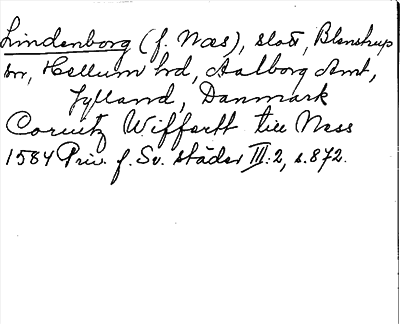 Lindenborg (f. Næs), slott, Blenstrup
sn, Hellum hd, Aalborg Amt,
Jylland, Danmark
Corvitz Wiffertt till Ness
1584 Priv. f. Sv. städer III:2, s. 872.